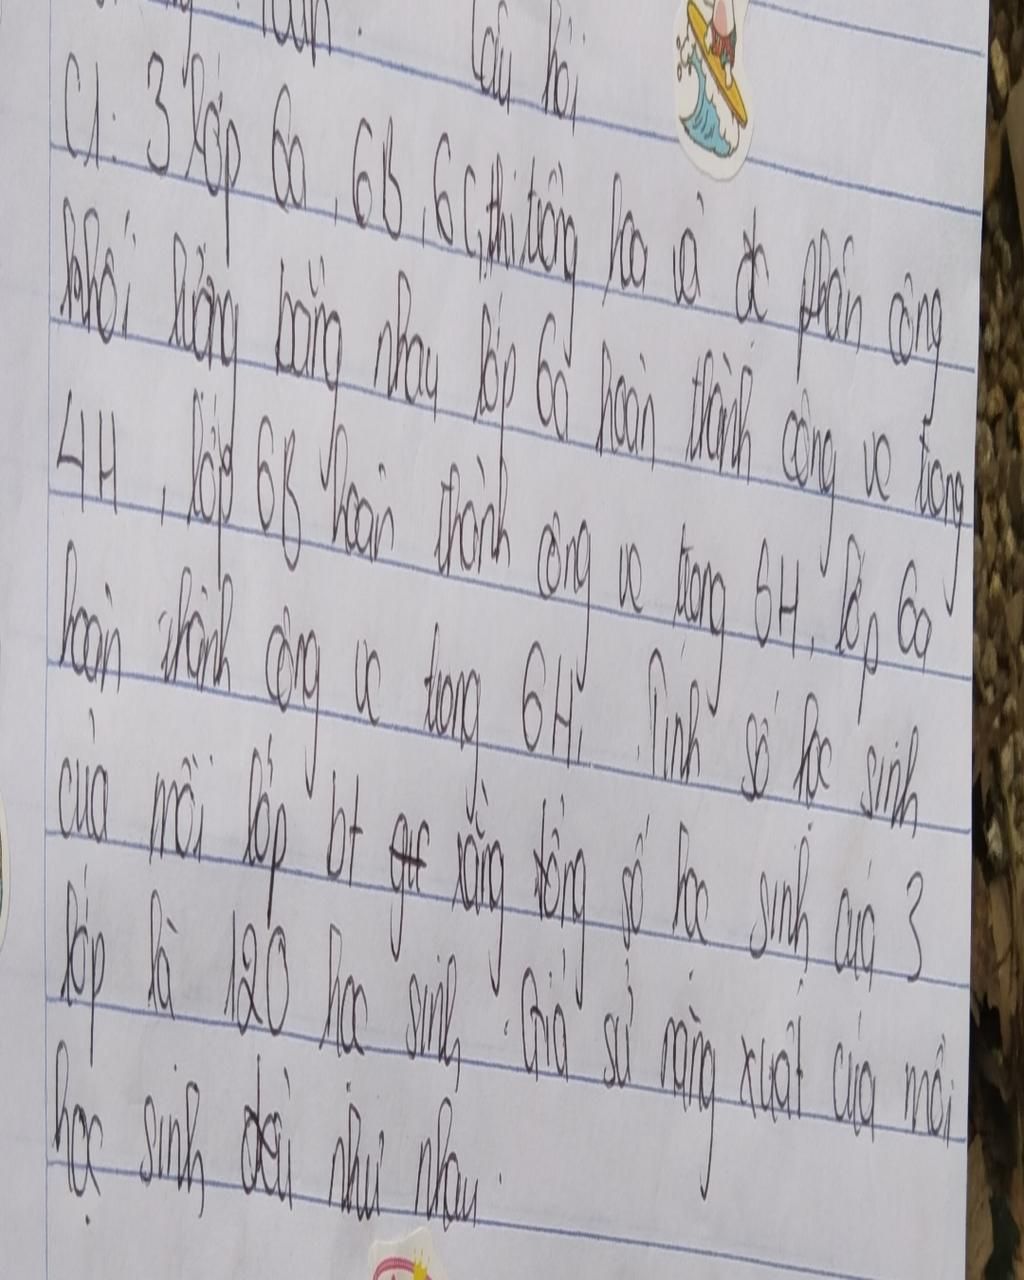 Câu hỏi
C1: 3 lớp 6a, 6B, 6C, thi trồng hoa và đc phân công
khối lượng bằng nhau lớp 6a hoàn thành công vc trong
4H, lớp 6B hoàn thành công vc trong 6H, lớp 6a
hoàn thành công vc trong 6H, Tính số học sinh
của mỗi lớp bt rằng tổng số học sinh của 3
lớp là 120 học sinh. Giả sử năng xuất của mỗi
học sinh đều như nhau.